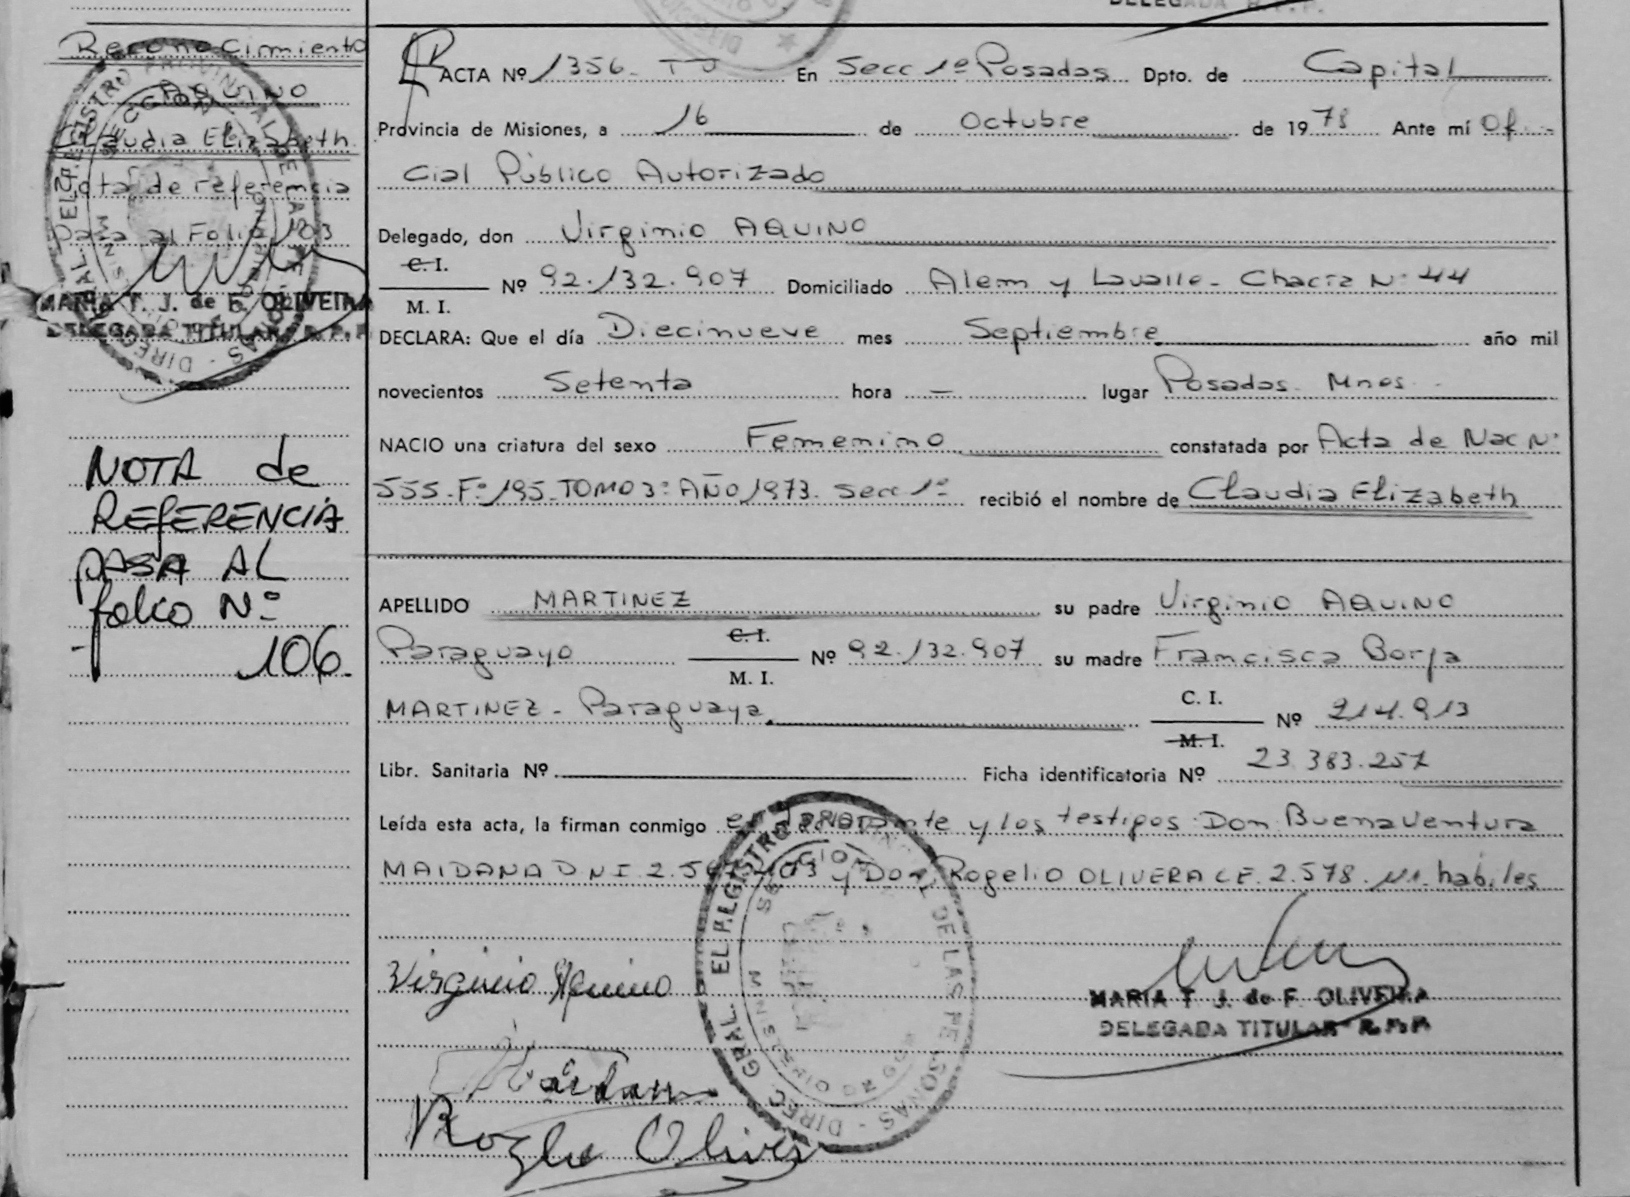 Reconocimiento
AQUINO
Claudia Elizabeth
Nota de referencia
pasa al Folio 103
MARIA T. J. de F. OLIVEIRA
DELEGADA TITULAR R. P. P.
NOTA de
REFERENCIA
PASA AL
folio Nº
106.
DELEGADA R.P.P.
ACTA Nº 1356. TJ En Secc 1ª Posadas Dpto. de Capital
Provincia de Misiones, a 16 de Octubre de 1978 Ante mí Ofi-
cial Público Autorizado
Delegado, don Virginio AQUINO
C. I.
M. I. Nº 92.132.907 Domiciliado Alem y Lavalle - Chacra Nº 44
DECLARA: Que el día Diecinueve mes Septiembre año mil
novecientos Setenta hora — lugar Posadas. Mnes.
NACIO una criatura del sexo Femenino constatada por Acta de Nac Nº
555. Fº 195. TOMO 3º AÑO 1973. Secc 1ª recibió el nombre de Claudia Elizabeth
APELLIDO MARTINEZ su padre Virginio AQUINO
Paraguayo C. I. M. I. Nº 92.132.907 su madre Francisca Borja
MARTINEZ - Paraguaya. C. I. M. I. Nº 214.913
Libr. Sanitaria Nº Ficha identificatoria Nº 23.383.257
Leída esta acta, la firman conmigo el declarante y los testigos Don Buenaventura
MAIDANA DNI. 2. y Don Rogelio OLIVERA CE. 2.578. hábiles
Virginio Aquino
MARIA T. J. de F. OLIVEIRA
DELEGADA TITULAR R.P.P.
DIREC. GRAL. EL REGISTRO PROVINCIAL DE LAS PERSONAS